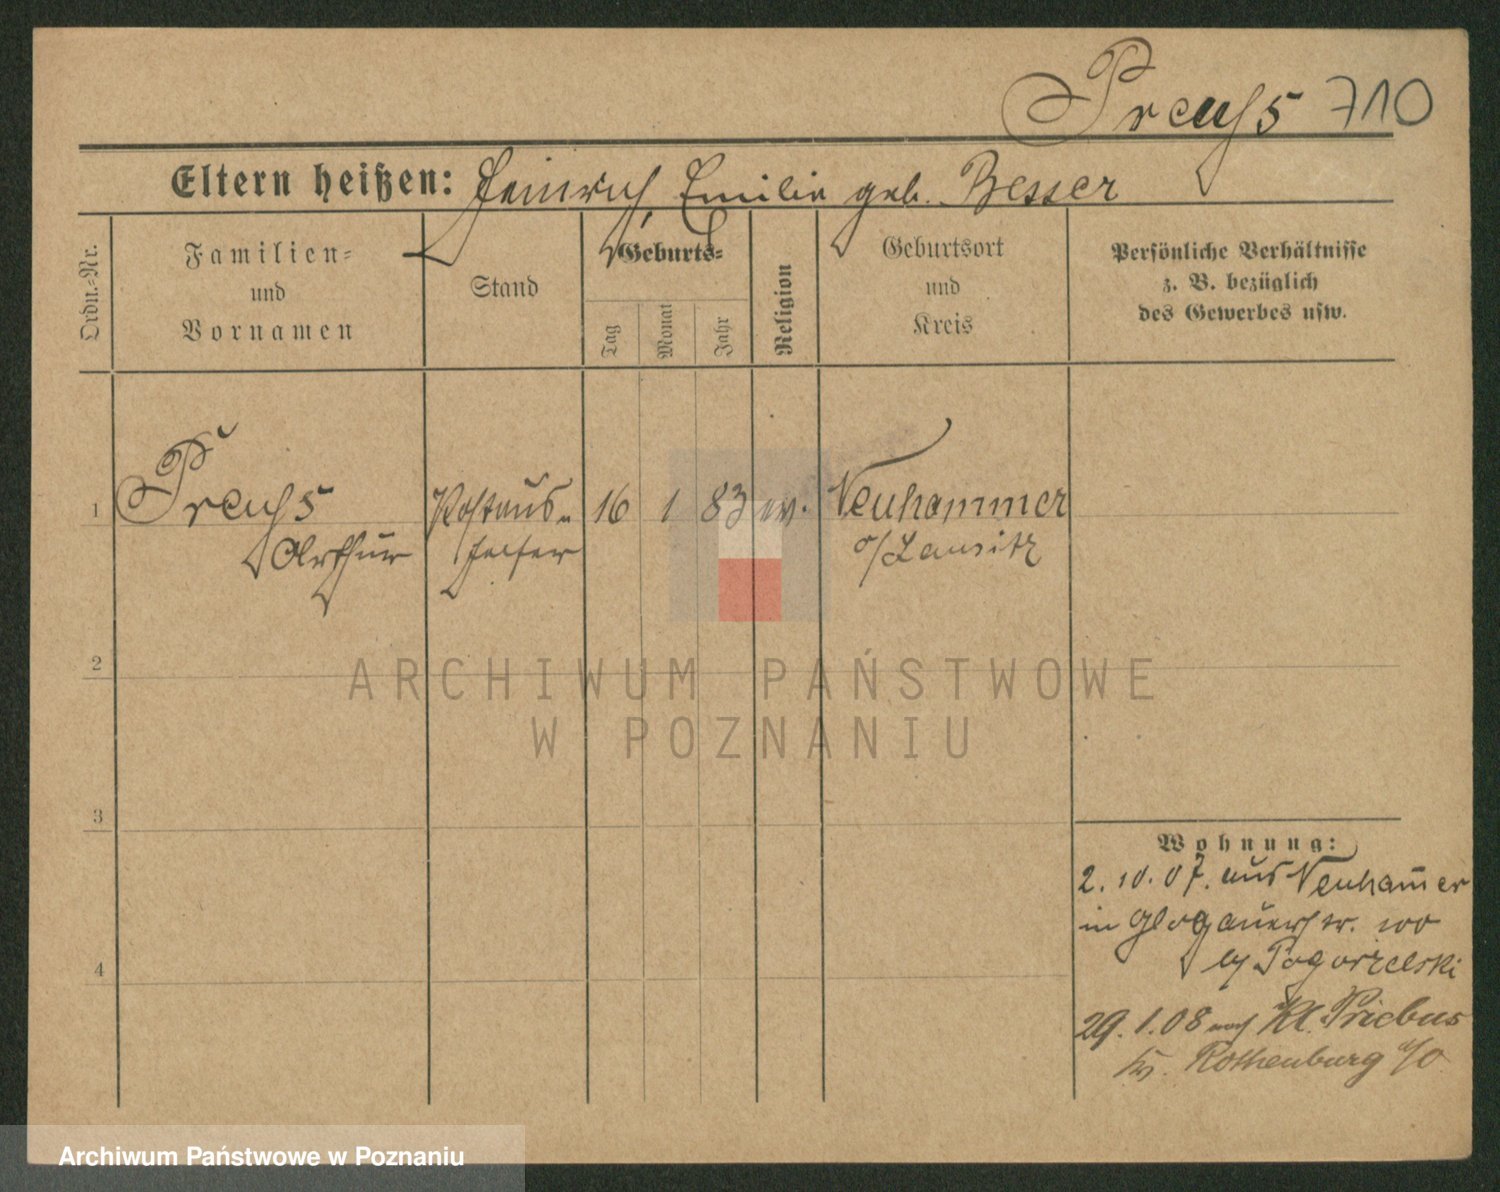 Preuſs 710
Eltern heißen: Heinrich, Emilie geb. Besser
Ordn.-Nr.
Familien-
und
Vornamen
Stand
Geburts-
Tag
Monat
Jahr
Religion
Geburtsort
und
Kreis
Persönliche Verhältnisse
z. B. bezüglich
des Gewerbes usw.
1 Preuſs Postaus- 16 1 83 ev. Neuhammer
Arthur helfer o/Lausitz
2
3
4
Wohnung:
2.10.07. aus Neuham̅er
in Glogauerstr. 100
by Pogorzelski
29.1.08 nach Kl. Priebus
Kr. Rothenburg a/O
ARCHIWUM PAŃSTWOWE
W POZNANIU
Archiwum Państwowe w Poznaniu